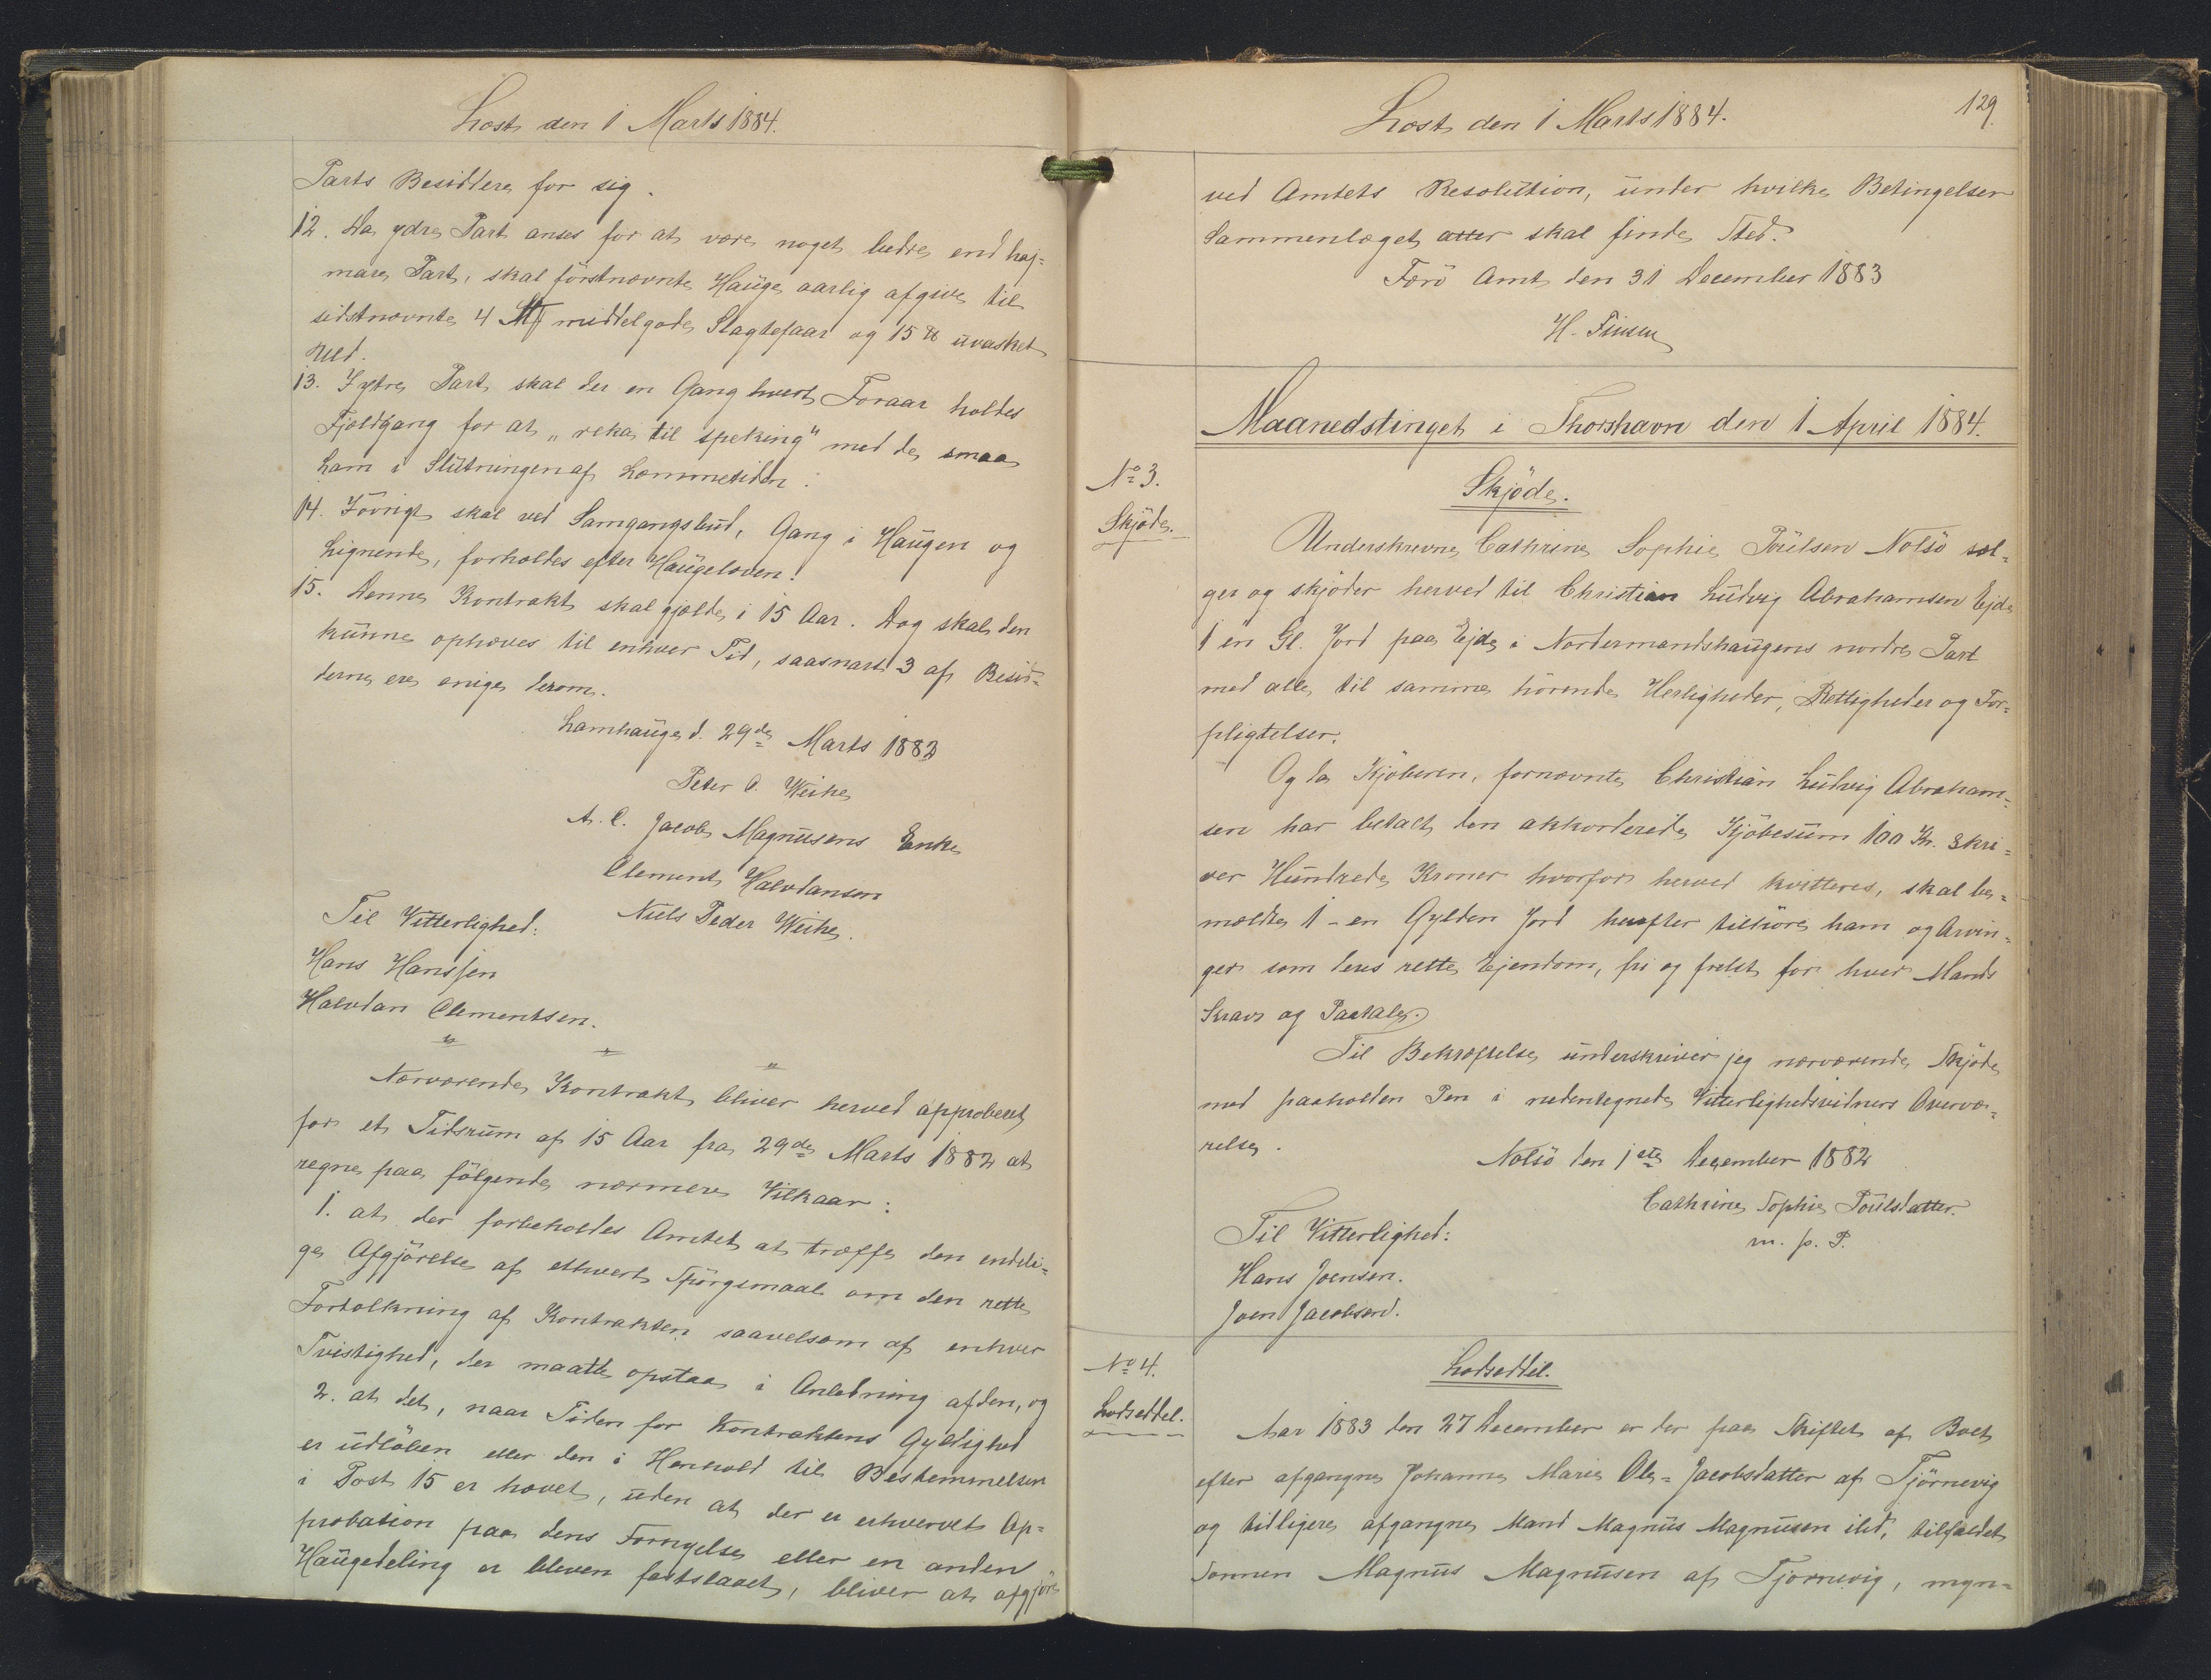 Læst den 1 Marts 1884.
Parts Besiddere for sig.
12. Da ydre Part anses for at være noget bedre end høj-
mare Part, skal förstnævnte Hauge aarlig afgive til
sidstnævnte 4 middelgode Slagtefaar og 15 ℔ uvasket
Uld.
13. I ytre Part skal der en Gang hvert Foraar holdes
Fjeldgang for at „reka til speking" med de smaa
Lam i Slutningen af Læmmetiden.
14. Iövrigt skal ved Samgangsbud, Gang i Haugen og
Lignende, forholdes efter Haugeloven.
15. Denne Kontrakt skal gjælde i 15 Aar. Dog skal den
kunne ophæves til enhver Tid, saasnart 3 af Besid-
derne ere enige derom.
Lamhauge d. 29de Marts 1882
Peter O. Weihe
A. C. Jacob Magnusens Enke
Clement Halvdansen
Niels Peder Weihe.
Til Vitterlighed:
Hans Hanssen
Halvdan Clementsen.
Nærværende Kontrakt bliver herved approberet
for et Tidsrum af 15 Aar fra 29de Marts 1882 at
regne paa fölgende nærmere Vilkaar:
1. at der forbeholdes Amtet at træffe den endeli-
ge Afgjörelse af ethvert Spörgsmaal om den rette
Fortolkning af Kontrakten saavelsom af enhver
Tvistighed, der maatte opstaa i Anledning af den, og
2. at det, naar Tiden for Kontraktens Gyldighed
er udlöben eller den i Henhold til Bestemmelsen
i Post 15 er hævet, uden at der er erhvervet Ap-
probation paa dens Fornyelse eller en anden
Haugedeling er bleven fastslaaet, bliver at afgjöre
Læst den 1 Marts 1884.
129
ved Amtets Resolution, under hvilke Betingelser
Sammenlæget atter skal finde Sted.
Færö Amt den 31 December 1883
H. Finsen
Maanedstinget i Thorshavn den 1 April 1884.
No 3.
Skjöde.
Skjöde.
Underskrevne Cathrine Sophie Poulsen Nolsö sæl-
ger og skjöder herved til Christian Ludvig Abrahamsen Ejde
1 en Gl. Jord paa Ejde i Nordermandshaugens nordre Part
med alle til samme hörende Herligheder, Rettigheder og For-
pligtelser.
Og da Kjöberen, fornævnte Christian Ludvig Abraham-
sen har betalt den akkorderede Kjöbesum 100 Kr. skri-
ver Hundrede Kroner hvorfor herved kvitteres, skal be-
mældte 1 - en Gylden Jord herefter tilhöre ham og Arvin-
ger som deres rette Ejendom, fri og frelst for hver Mands
Krav og Paatale.
Til Bekræftelse underskriver jeg nærværende Skjöde
med paaholden Pen i nedentegnede Vitterlighedsvidners Overvæ-
relse.
Nolsö den 1ste December 1882
Cathrine Sophie Poulsdatter.
m. p. P.
Til Vitterlighed:
Hans Joensen.
Joen Jacobsen.
No 4.
Lodseddel.
Lodseddel.
Aar 1883 den 27 December er der paa Skiftet af Boet
efter afgangne Johanne Marie Ole-Jacobsdatter af Tjörnevig
og tidligere afgangne Mand Magnus Magnusen ibd, tilfaldet
Sønnen Magnus Magnusen af Tjørnevig, myn-